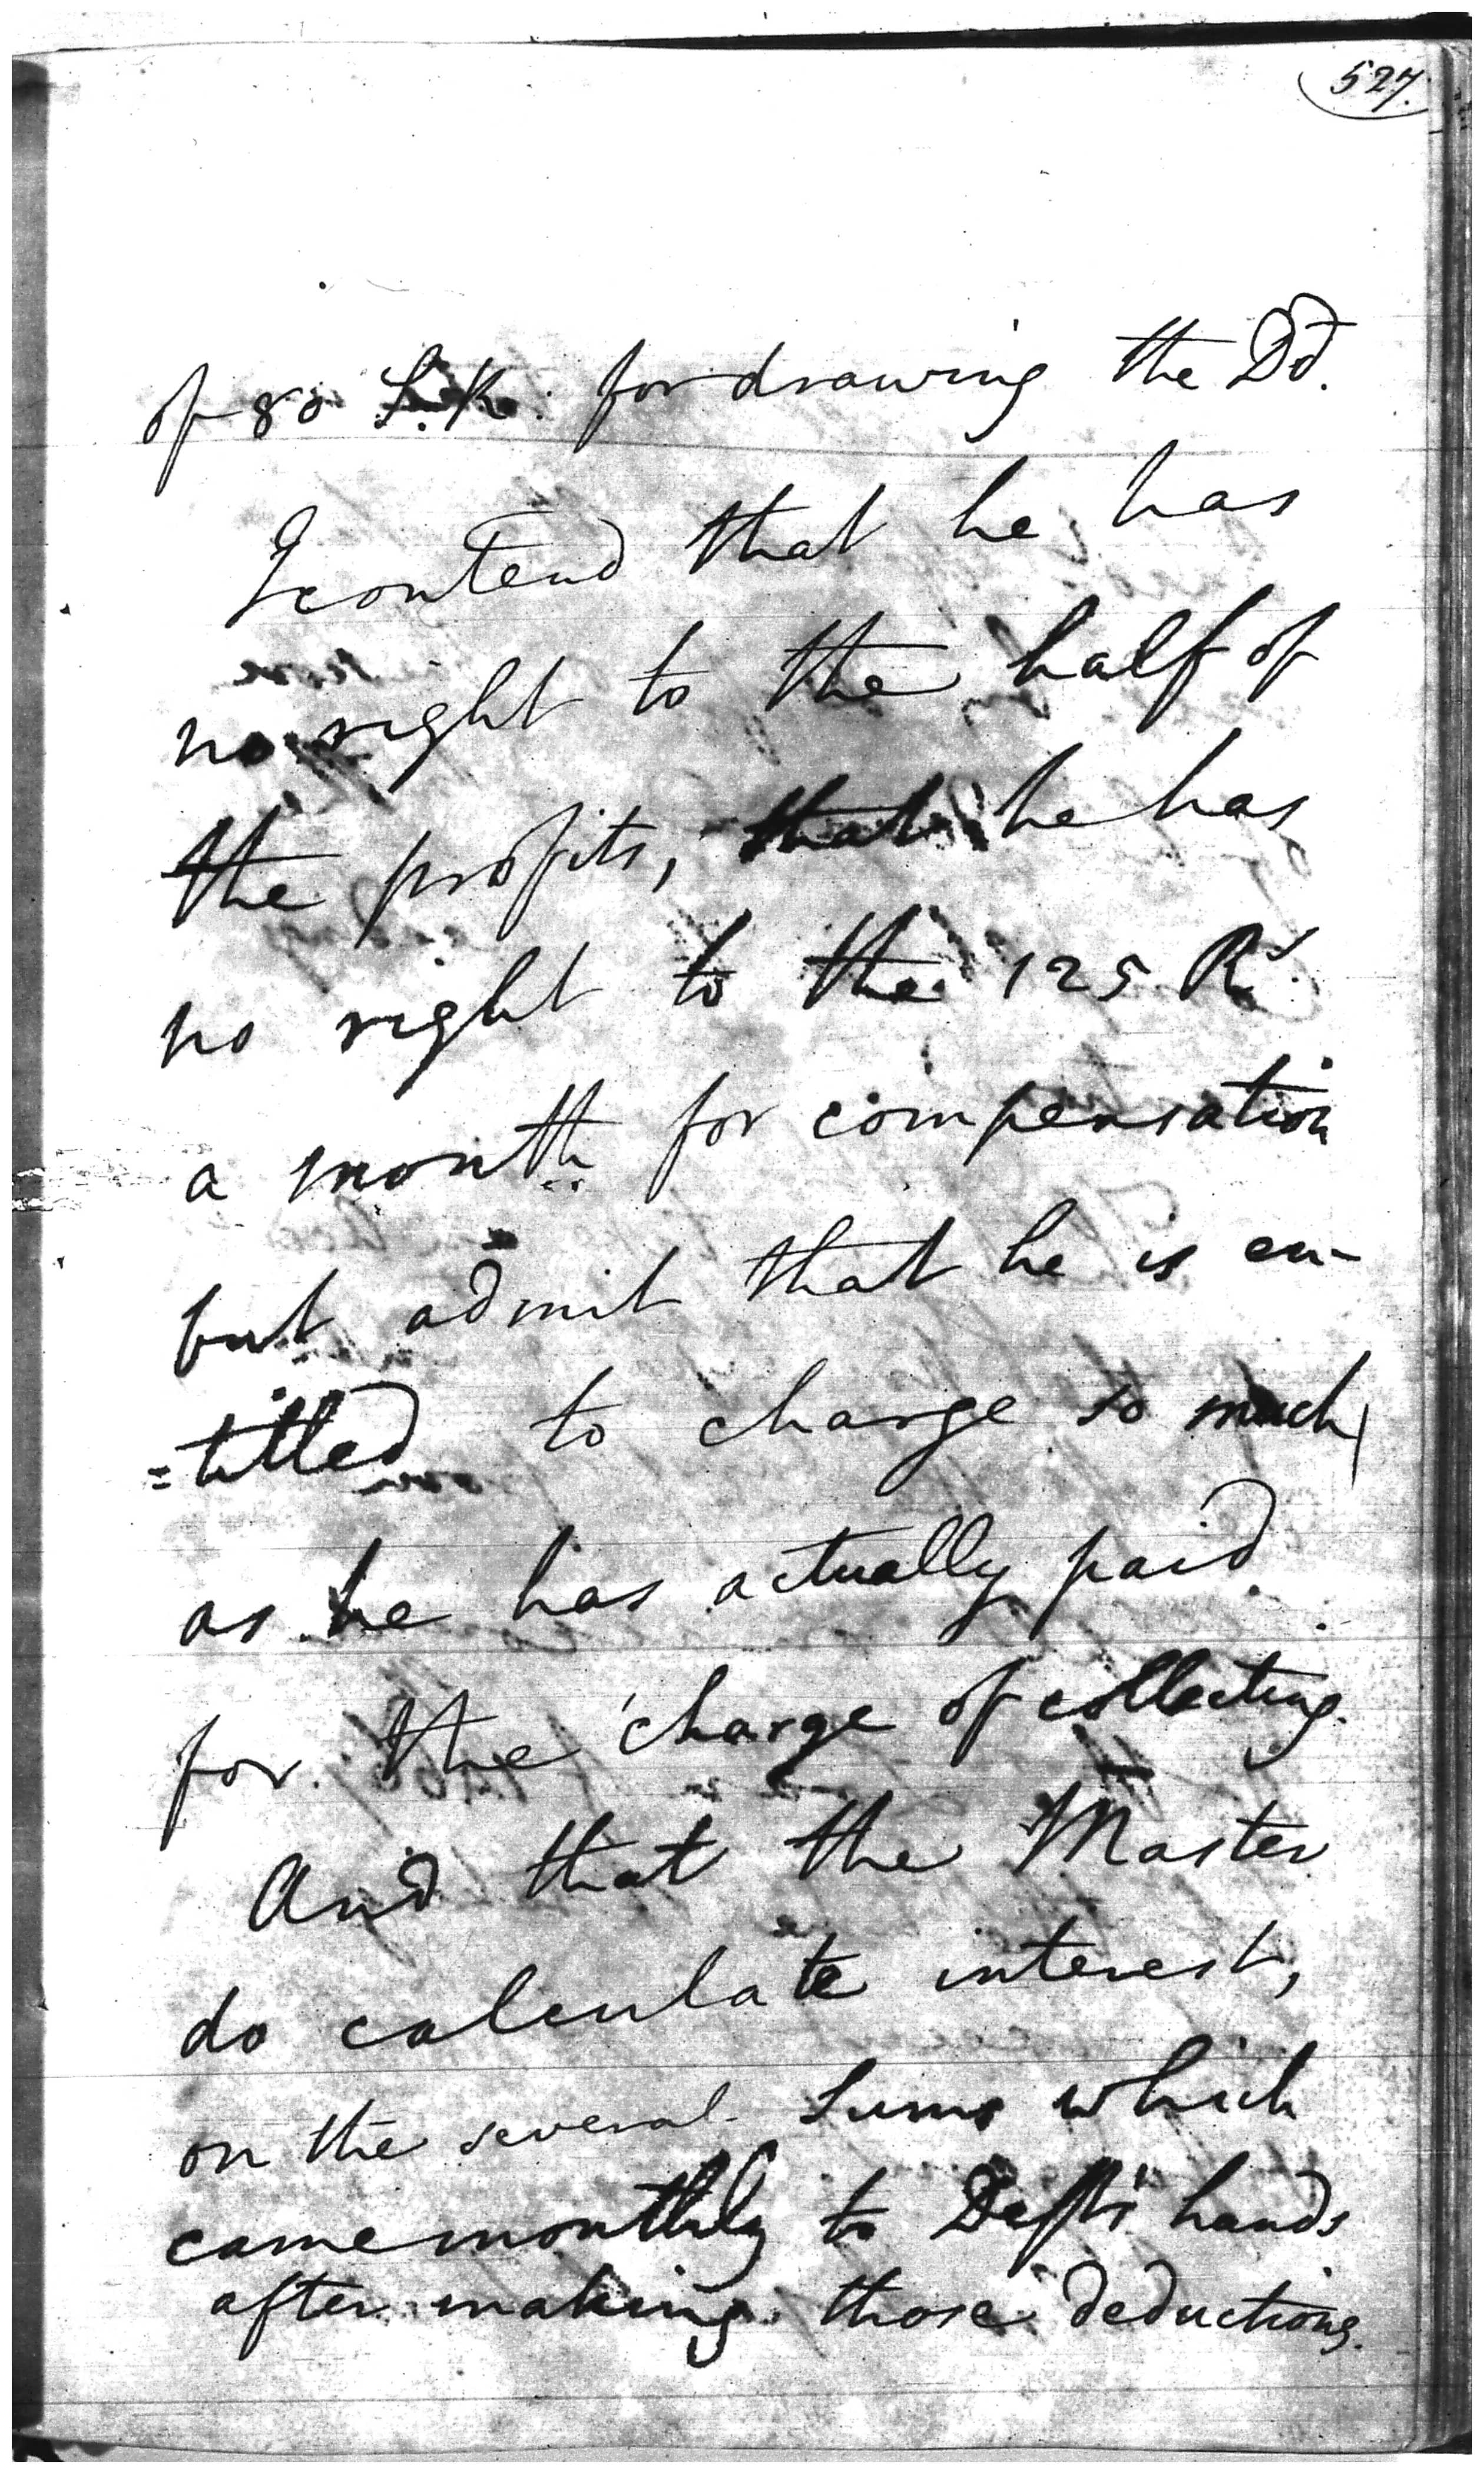 527.
of 80 S.R. for drawing the Dd.
I contend that he has
no right to the half of
the profits, that he has
no right to the 125 Rs.
a month for compensation
but admit that he is en-
=titled to charge so much
as he has actually paid
for the charge of collecting.
And that the Master
do calculate interest,
on the several sums which
came monthly to Defts' hands
after making those deductions.